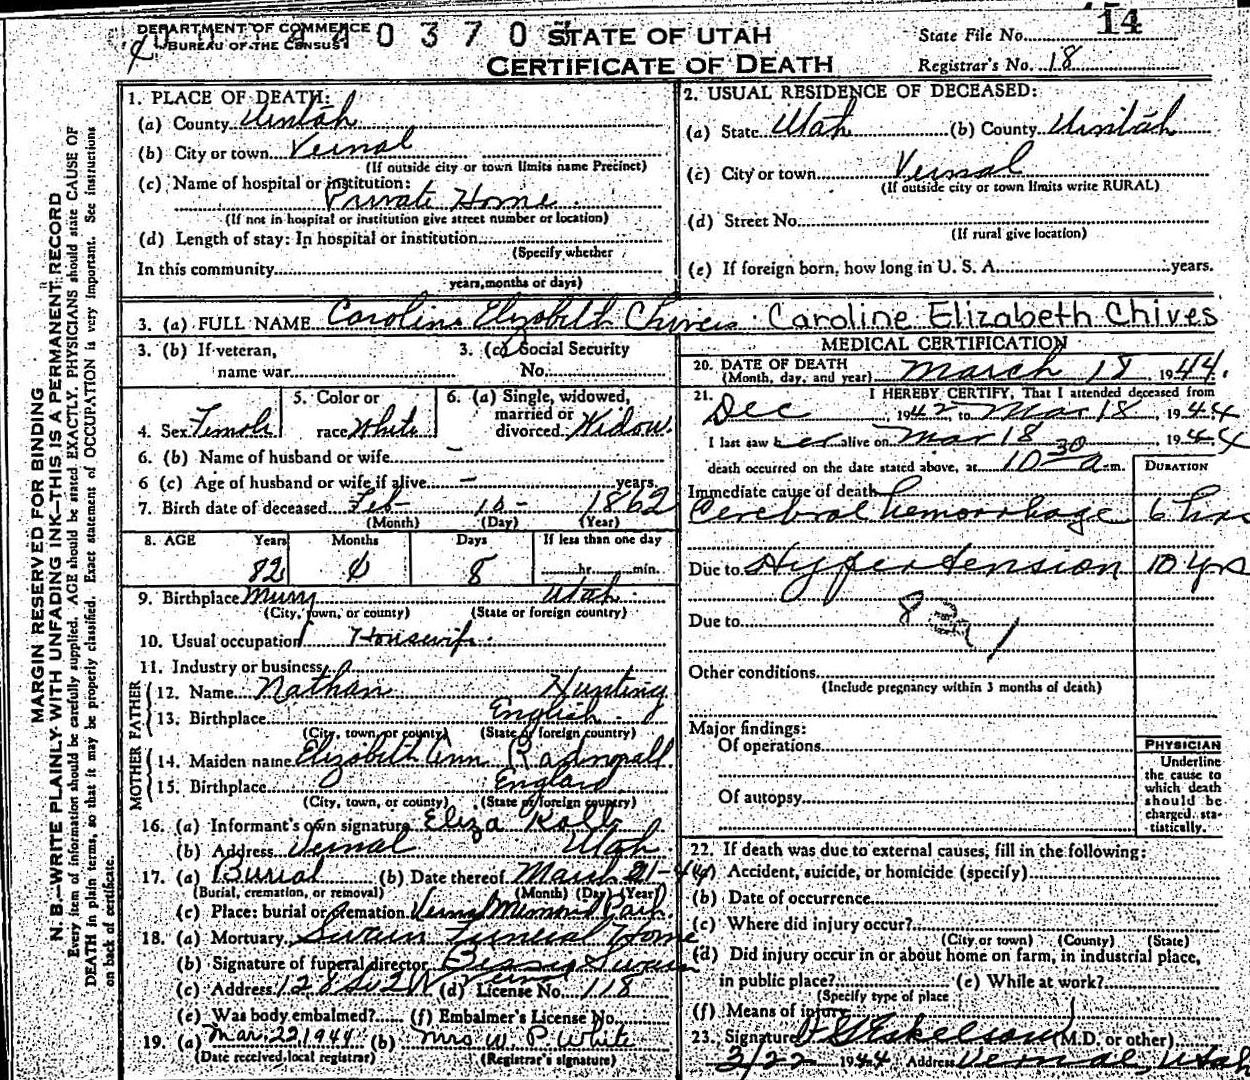 DEPARTMENT OF COMMERCE
BUREAU OF THE CENSUS
0 3 7 0
STATE OF UTAH
CERTIFICATE OF DEATH
State File No. 14
Registrar's No. 18
MARGIN RESERVED FOR BINDING
N. B.—WRITE PLAINLY WITH UNFADING INK—THIS IS A PERMANENT RECORD
Every item of information should be carefully supplied. AGE should be stated EXACTLY. PHYSICIANS should state CAUSE OF
DEATH in plain terms, so that it may be properly classified. Exact statement of OCCUPATION is very important. See instructions
on back of certificate.
1. PLACE OF DEATH:
(a) County Uintah
(b) City or town Vernal
(If outside city or town limits name Precinct)
(c) Name of hospital or institution:
Private Home
(If not in hospital or institution give street number or location)
(d) Length of stay: In hospital or institution
(Specify whether
In this community
years, months or days)
2. USUAL RESIDENCE OF DECEASED:
(a) State Utah (b) County Uintah
(c) City or town Vernal
(If outside city or town limits write RURAL)
(d) Street No.
(If rural give location)
(e) If foreign born, how long in U. S. A. years.
3. (a) FULL NAME Caroline Elizabeth Chives Caroline Elizabeth Chives
3. (b) If veteran, name war
3. (c) Social Security No.
4. Sex Female
5. Color or race White
6. (a) Single, widowed, married or divorced Widow
6. (b) Name of husband or wife —
6 (c) Age of husband or wife if alive — years.
7. Birth date of deceased Feb 10 1862
(Month) (Day) (Year)
8. AGE Years Months Days If less than one day
82 8 hr. min.
9. Birthplace Murry Utah
(City, town, or county) (State or foreign country)
10. Usual occupation Housewife
11. Industry or business
FATHER
12. Name Nathan Hunting
13. Birthplace English
(City, town, or county) (State or foreign country)
MOTHER
14. Maiden name Elizabeth Ann
15. Birthplace England
(City, town, or county) (State or foreign country)
16. (a) Informant's own signature Eliza Kolb
(b) Address Vernal Utah
17. (a) Burial (b) Date thereof March 21-44
(Burial, cremation, or removal) (Month) (Day) (Year)
(c) Place: burial or cremation Vernal Memorial Park
18. (a) Mortuary Swain Funeral Home
(b) Signature of funeral director Bessie Swain
(c) Address 128 So 2 W Vernal (d) License No. 118
(e) Was body embalmed? (f) Embalmer's License No.
19. (a) Mar. 22, 1944 (b) Mrs W. P. White
(Date received local registrar) (Registrar's signature)
MEDICAL CERTIFICATION
20. DATE OF DEATH
(Month, day, and year) March 18 1944.
21. I HEREBY CERTIFY, That I attended deceased from
Dec 1942 to Mar 18, 1944
I last saw her alive on Mar 18, 1944
death occurred on the date stated above, at 10 30 a.m.
DURATION
Immediate cause of death
Cerebral hemorrhage 6 hrs
Due to Hypertension 10 yrs
Due to
Other conditions
(Include pregnancy within 3 months of death)
Major findings:
Of operations
Of autopsy
PHYSICIAN
Underline
the cause to
which death
should be
charged sta-
tistically.
22. If death was due to external causes, fill in the following:
(a) Accident, suicide, or homicide (specify)
(b) Date of occurrence
(c) Where did injury occur?
(City or town) (County) (State)
(d) Did injury occur in or about home on farm, in industrial place,
in public place? (e) While at work?
(Specify type of place
(f) Means of injury
23. Signature (M.D. or other)
3/22 1944 Address Vernal, Utah